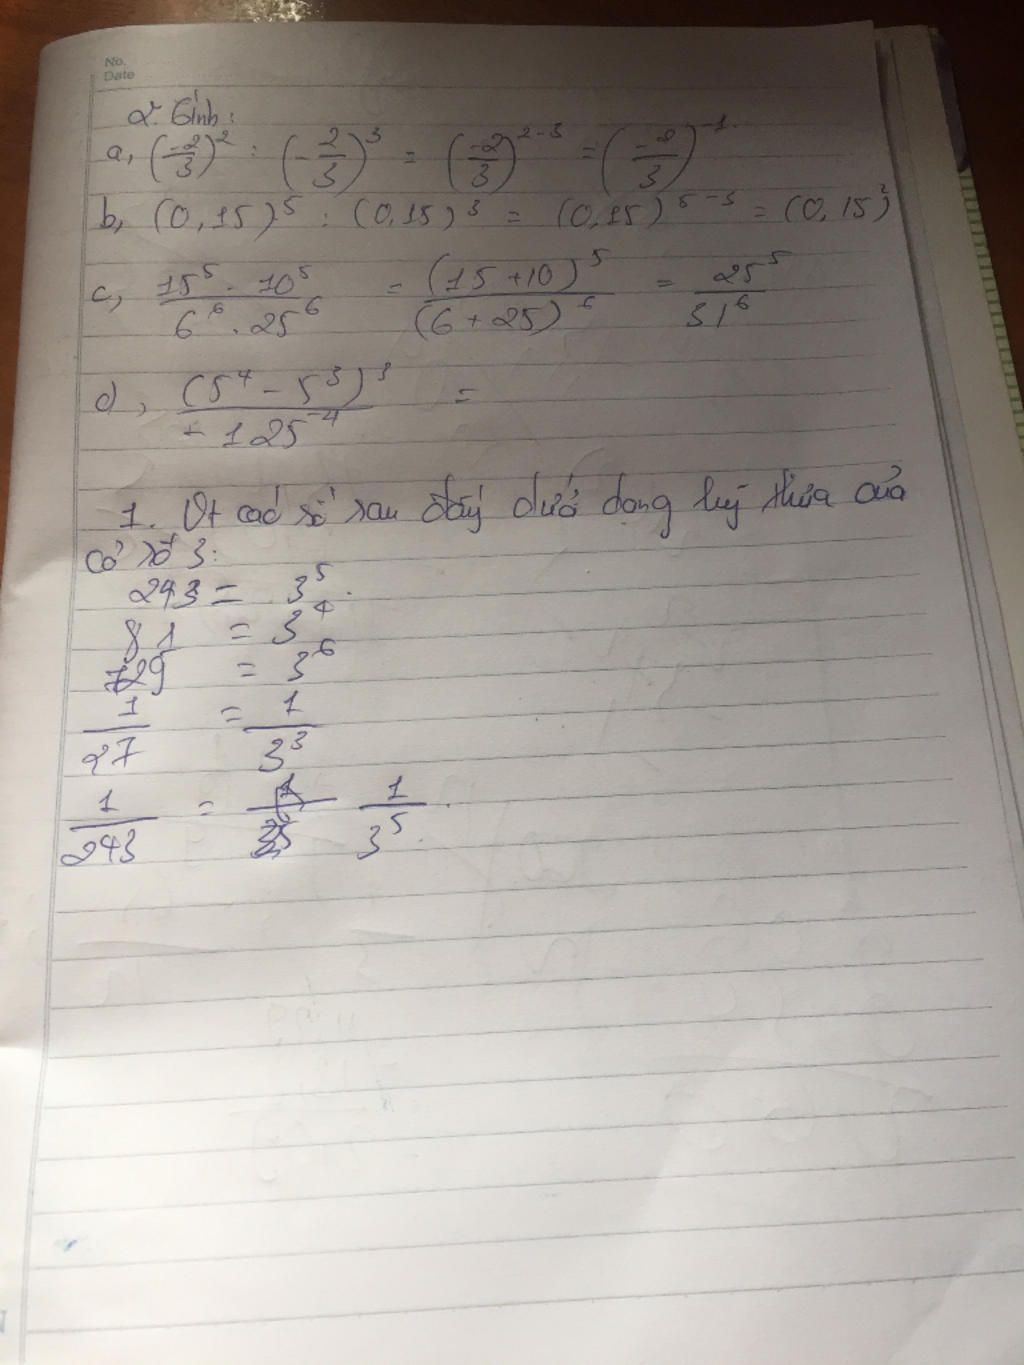 No.
Date
2. Tính:
a, (-2/3)^2 : (-2/3)^3 = (-2/3)^{2-3} = (-2/3)^{-1}.
b, (0,15)^5 : (0,15)^3 = (0,15)^{5-3} = (0,15)^2
c, 15^5 . 10^5 / 6^6 . 25^6 = (15+10)^5 / (6+25)^6 = 25^5 / 31^6
d, (5^4 - 5^3)^3 / 125^{-4} =
1. Vt các số sau đây dưới dạng luỹ thừa của
cơ số 3:
243 = 3^5.
81 = 3^4
729 = 3^6
1/27 = 1/3^3
1/243 = 1/3^5.